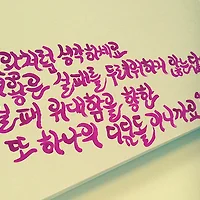 처럼 생각하세요
은 실패를 두려워하지 않는답
실패 위대함을 향한
또 하나의 디딤돌이니까요